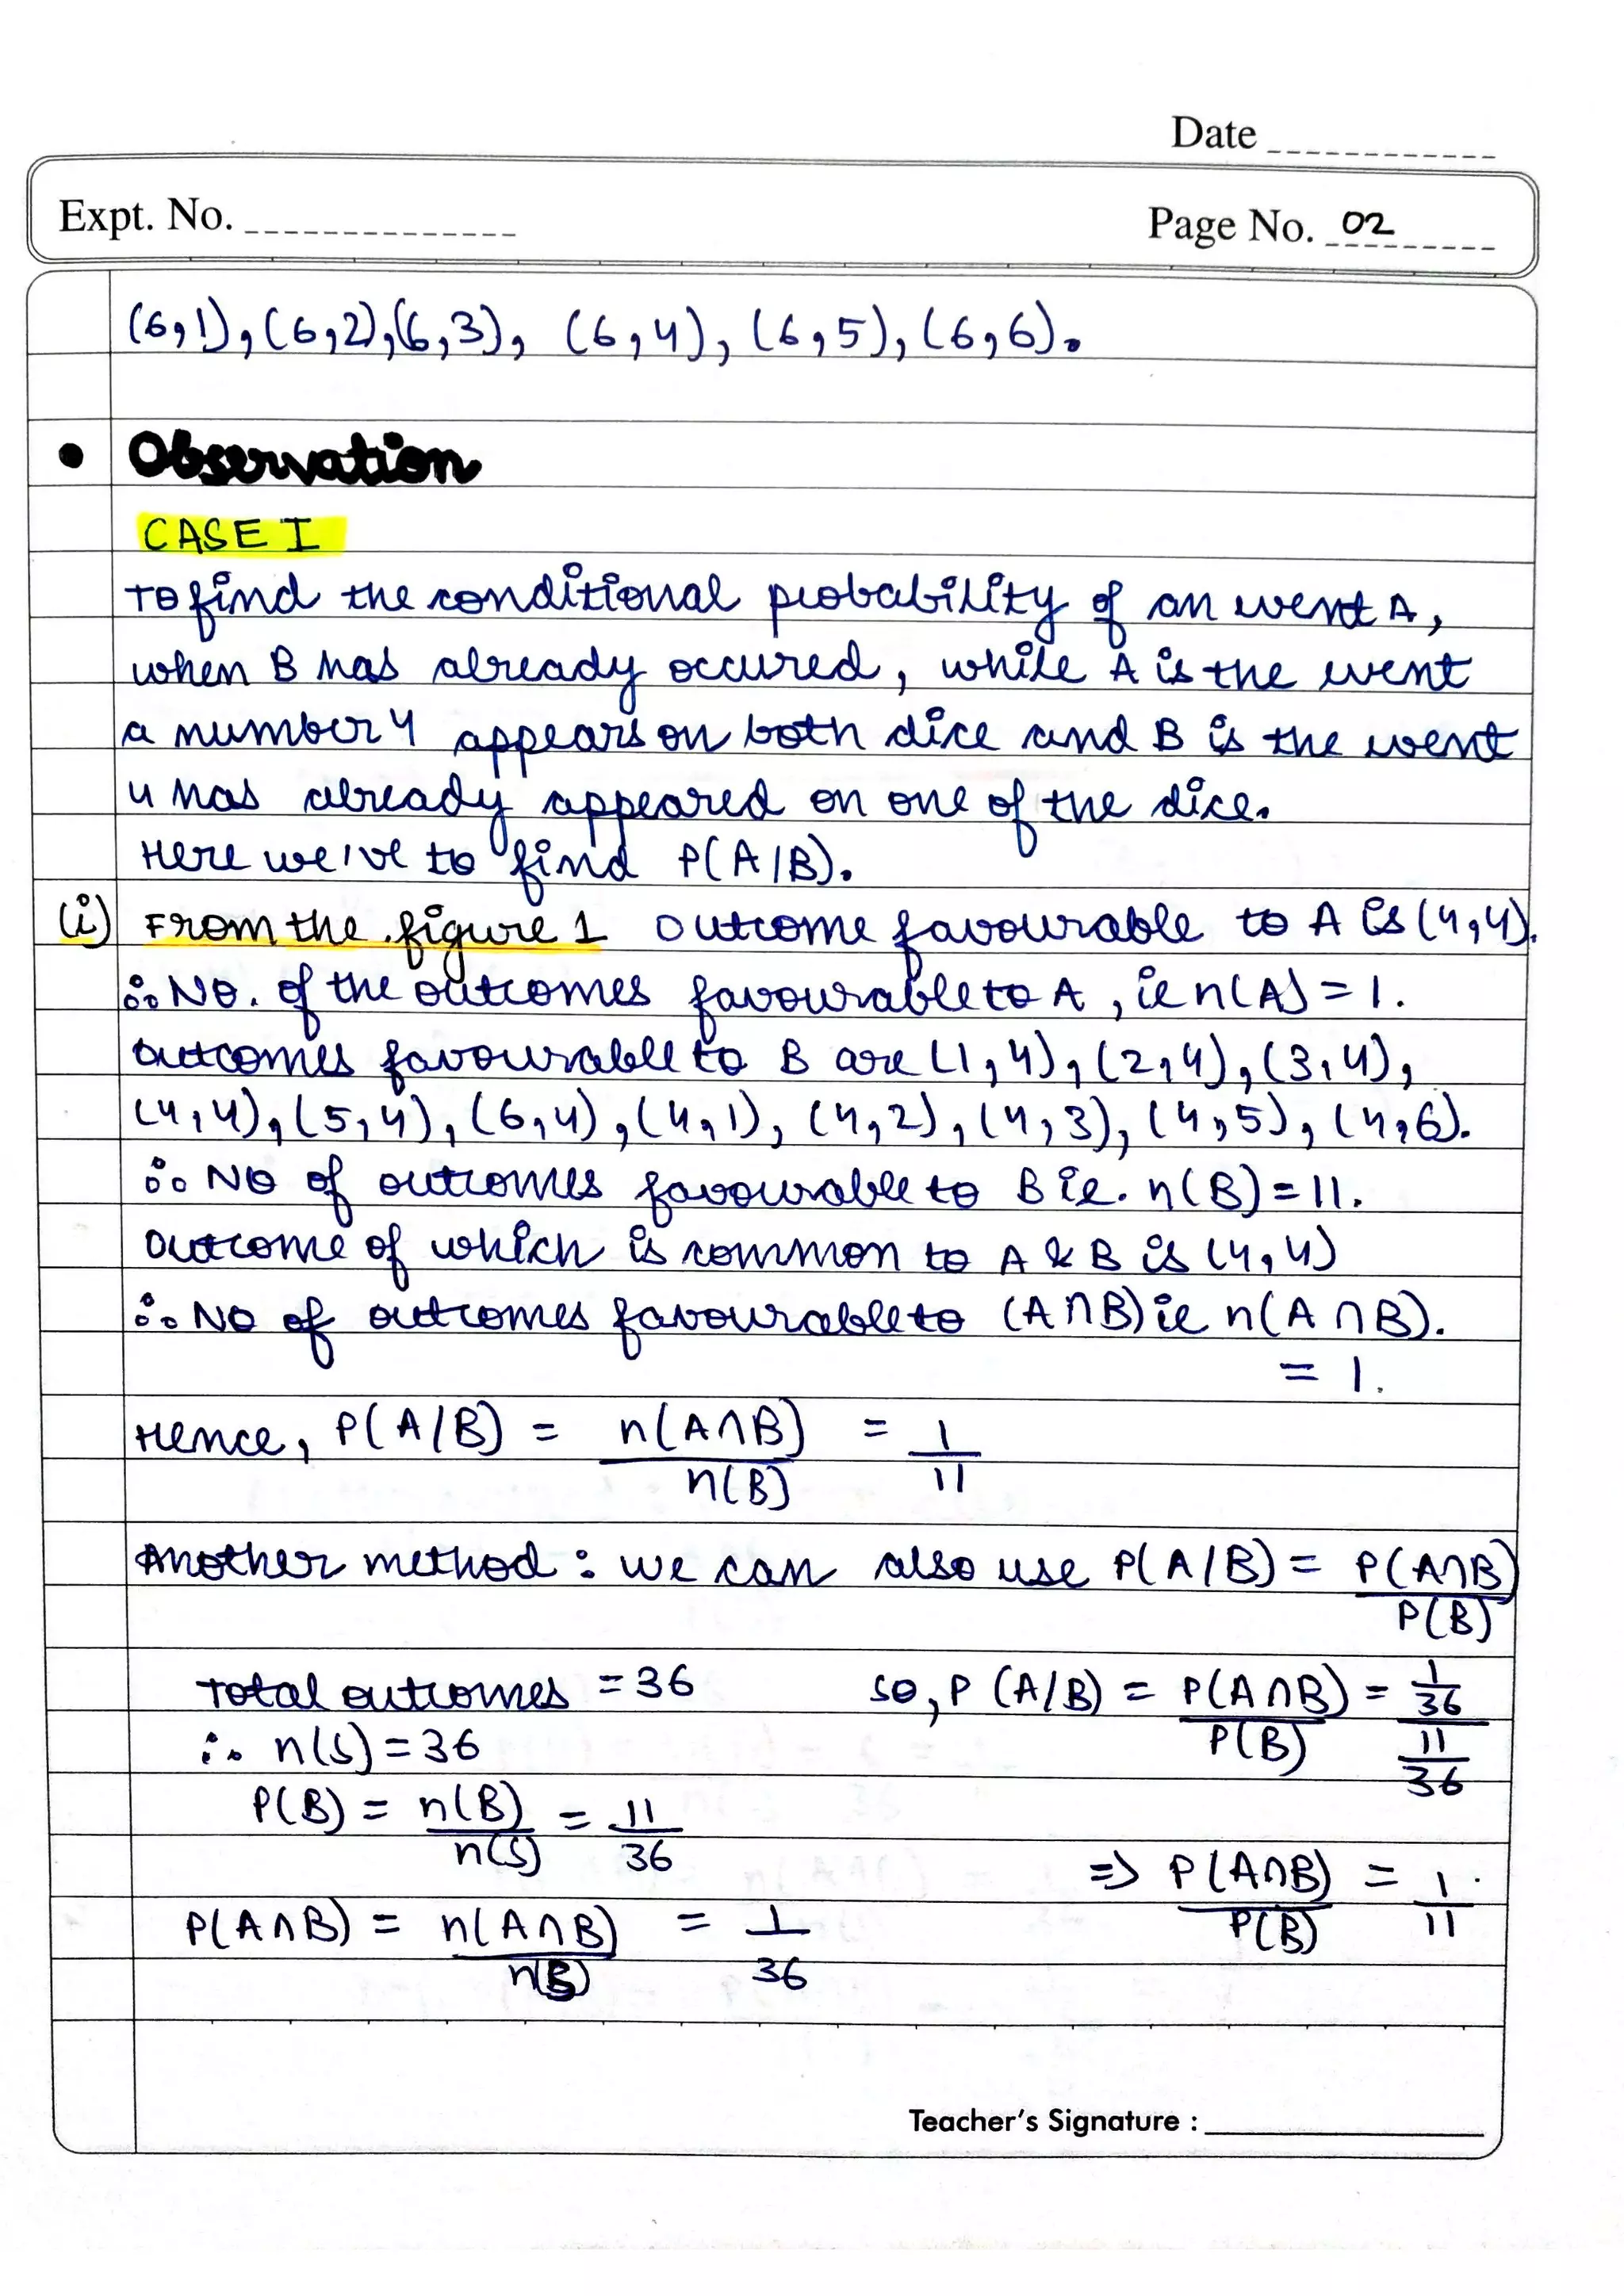 Date
Expt. No.
Page No. 02
(6,1), (6,2), (6,3), (6,4), (6,5), (6,6).
• Observation
CASE I
To find the conditional probability of an event A,
when B has already occured, while A is the event
a number 4 appears on both dice and B is the event
4 has already appeared on one of the dice.
Here we've to find P(A/B).
(i) From the figure 1 outcome favourable to A is (4,4).
∴ No. of the outcomes favourable to A, ie n(A) = 1.
Outcomes favourable to B are (1,4), (2,4), (3,4),
(4,4), (5,4), (6,4), (4,1), (4,2), (4,3), (4,5), (4,6).
∴ No of outcomes favourable to B ie. n(B) = 11.
Outcome of which is common to A & B is (4,4)
∴ No of outcomes favourable to (A∩B) ie n(A∩B).
= 1.
Hence, P(A/B) = n(A∩B) = 1
n(B) 11
Another method : we can also use P(A/B) = P(A∩B)
P(B)
Total outcomes = 36 So, P(A/B) = P(A∩B) = 1/36
∴ n(S) = 36 P(B) 11/36
P(B) = n(B) = 11
n(S) 36
⇒ P(A∩B) = 1
P(B) 11
P(A∩B) = n(A∩B) = 1
n(S) 36
Teacher's Signature :